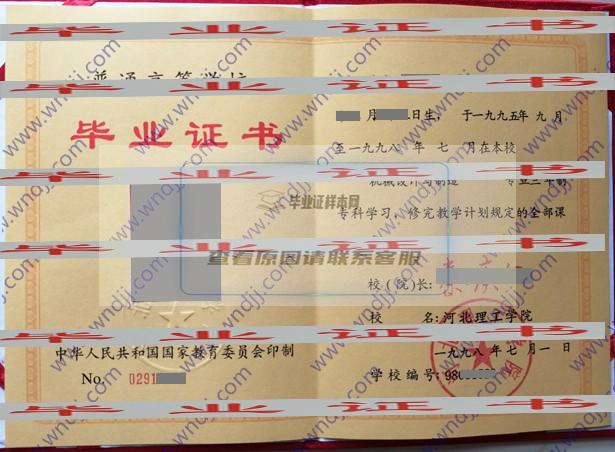 毕 业 证 书
普通高等学校
毕业证书
月 日生， 于一九九五年 九 月
至一九九八 年 七 月在本校
机械设计与制造 专业三年制
专科学习，修完教学计划规定的全部课
毕业证样本网
查看原图请联系客服
校（院）长:
校 名: 河北理工学院
中华人民共和国国家教育委员会印制
一九九八 年 七 月 一 日
No. 0291
学校编号: 980
毕 业 证 书
毕 业 证 书
毕 业 证 书
毕 业 证 书
毕 业 证 书
www.wndjj.com